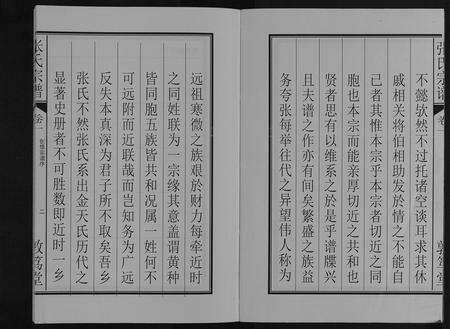 张氏宗谱
卷一
敦笃堂
不懿欤然不过托诸空谈耳求其休
戚相关将伯相助发於情之不能自
已者其惟本宗乎本宗者切近之同
胞也本宗而能亲厚切近之共和也
贤者思有以维系之於是乎谱牒兴
且夫谱之作亦有间矣繁盛之族益
务夸张每举往代之异望伟人称为
远祖寒微之族艰於财力每牵近时
之同姓联为一宗缘其意盖谓黄种
皆同胞五族皆共和况属一姓何不
可远附而近联哉而岂知务为广远
反失本真深为君子所不取矣吾乡
张氏不然张氏系出金天氏历代之
显著史册者不可胜数即近时一乡
张氏宗谱
卷一
二
敦笃堂